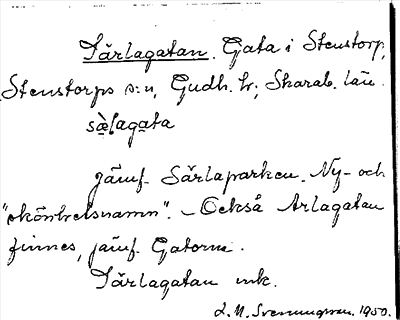 Särlagatan. Gata i Stenstorp,
Stenstorps s:n, Gudh. hr; Skarab. län.
sæ̣lagạta
jämf. Särlaparken. Ny- och
"skönhetsnamn". – Också Arlagatan
finnes, jämf. Gatorna.
Särlagatan ink.
Svenningsson. 1950.